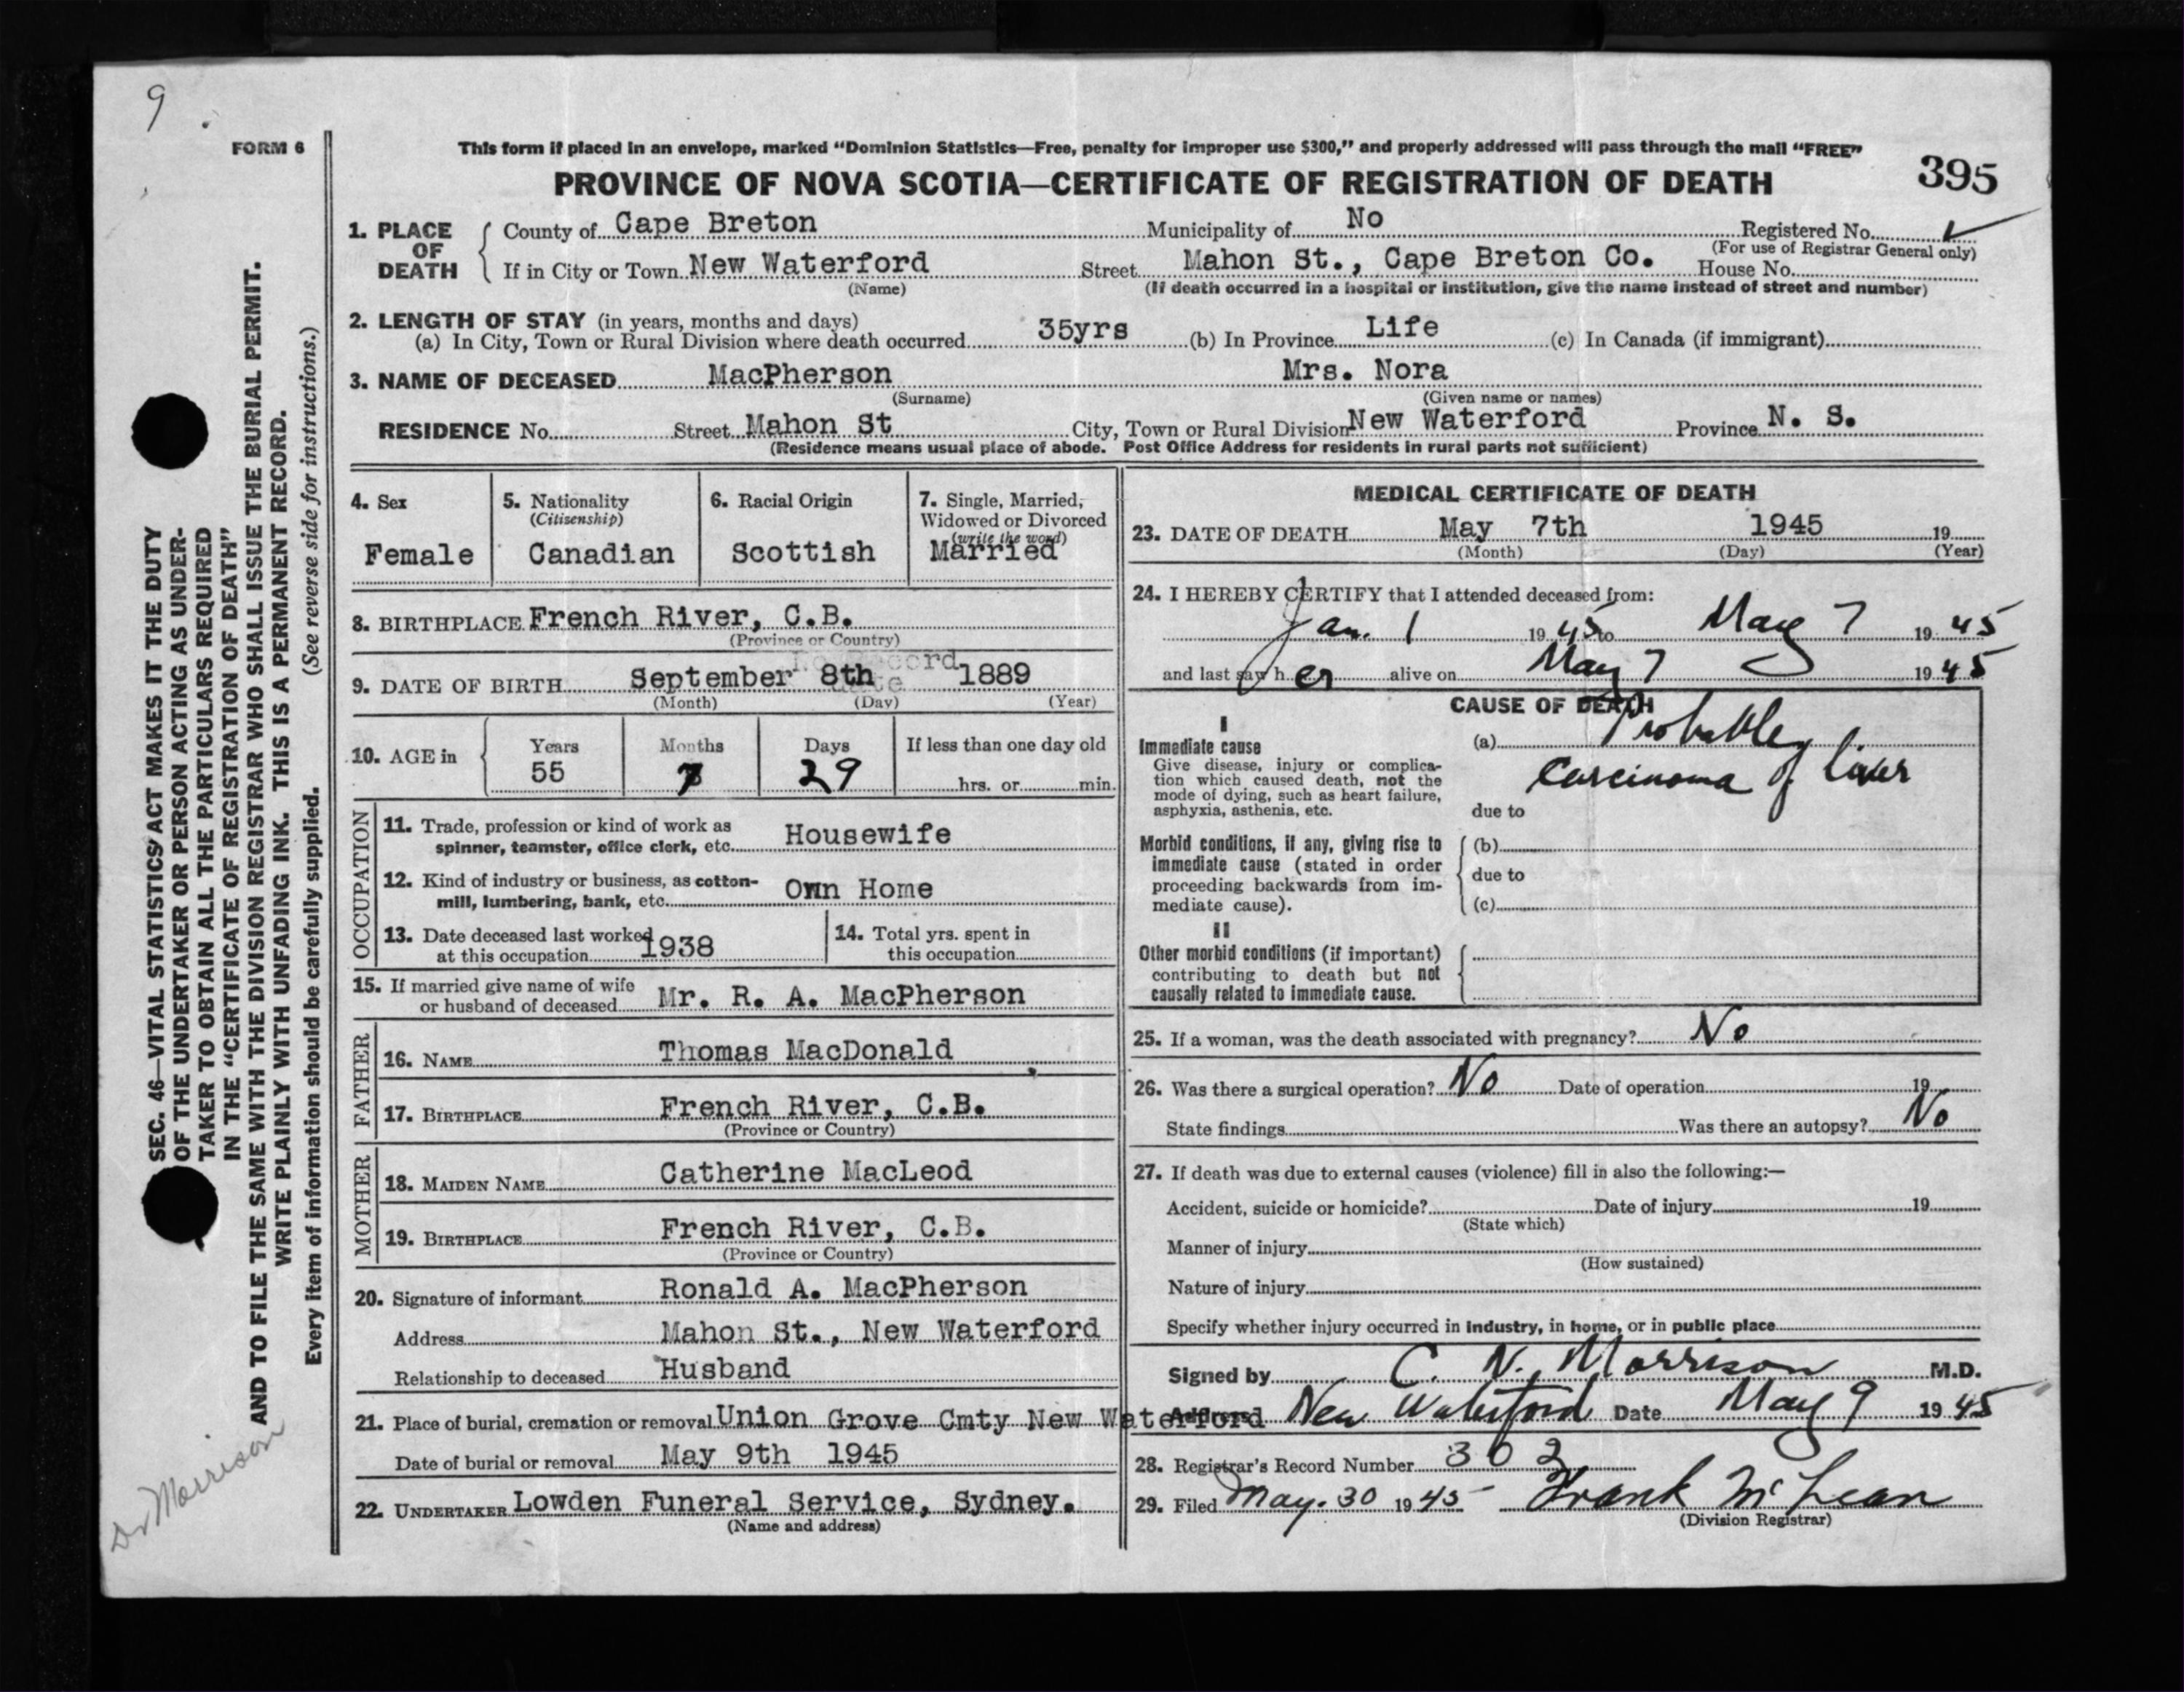 9
FORM 6
This form if placed in an envelope, marked "Dominion Statistics—Free, penalty for improper use $300," and properly addressed will pass through the mail "FREE"
PROVINCE OF NOVA SCOTIA—CERTIFICATE OF REGISTRATION OF DEATH
395
1. PLACE OF DEATH
County of Cape Breton Municipality of No Registered No. ✓
(For use of Registrar General only)
If in City or Town New Waterford Street Mahon St., Cape Breton Co. House No.
(Name) (If death occurred in a hospital or institution, give the name instead of street and number)
2. LENGTH OF STAY (in years, months and days)
(a) In City, Town or Rural Division where death occurred 35yrs (b) In Province Life (c) In Canada (if immigrant)
3. NAME OF DECEASED MacPherson Mrs. Nora
(Surname) (Given name or names)
RESIDENCE No. Street Mahon St City, Town or Rural Division New Waterford Province N. S.
(Residence means usual place of abode. Post Office Address for residents in rural parts not sufficient)
4. Sex
Female
5. Nationality
(Citizenship)
Canadian
6. Racial Origin
Scottish
7. Single, Married,
Widowed or Divorced
(write the word)
Married
8. BIRTHPLACE French River, C.B.
(Province or Country)
9. DATE OF BIRTH September 8th 1889
(Month) (Day) (Year)
10. AGE in
Years Months Days If less than one day old
55 7 29 hrs. or min.
OCCUPATION
11. Trade, profession or kind of work as
spinner, teamster, office clerk, etc. Housewife
12. Kind of industry or business, as cotton-
mill, lumbering, bank, etc. Own Home
13. Date deceased last worked
at this occupation 1938
14. Total yrs. spent in
this occupation
15. If married give name of wife
or husband of deceased Mr. R. A. MacPherson
FATHER
16. NAME Thomas MacDonald
17. BIRTHPLACE French River, C.B.
(Province or Country)
MOTHER
18. MAIDEN NAME Catherine MacLeod
19. BIRTHPLACE French River, C.B.
(Province or Country)
20. Signature of informant Ronald A. MacPherson
Address Mahon St., New Waterford
Relationship to deceased Husband
21. Place of burial, cremation or removal Union Grove Cmty New Waterford
Date of burial or removal May 9th 1945
22. UNDERTAKER Lowden Funeral Service, Sydney.
(Name and address)
MEDICAL CERTIFICATE OF DEATH
23. DATE OF DEATH May 7th 1945 19
(Month) (Day) (Year)
24. I HEREBY CERTIFY that I attended deceased from:
Jan. 1 19 45 to May 7 19 45
and last saw h er alive on May 7 19 45
CAUSE OF DEATH
I
Immediate cause
Give disease, injury or complica-
tion which caused death, not the
mode of dying, such as heart failure,
asphyxia, asthenia, etc.
(a) Probably
Carcinoma of liver
due to
Morbid conditions, if any, giving rise to
immediate cause (stated in order
proceeding backwards from im-
mediate cause).
(b)
due to
(c)
II
Other morbid conditions (if important)
contributing to death but not
causally related to immediate cause.
25. If a woman, was the death associated with pregnancy? No
26. Was there a surgical operation? No Date of operation 19
State findings Was there an autopsy? No
27. If death was due to external causes (violence) fill in also the following:—
Accident, suicide or homicide? Date of injury 19
(State which)
Manner of injury
(How sustained)
Nature of injury
Specify whether injury occurred in industry, in home, or in public place
Signed by C. N. Morrison M.D.
Address New Waterford Date May 9 19 45
28. Registrar's Record Number 302
29. Filed May. 30 19 45 Frank McLean
(Division Registrar)
SEC. 46—VITAL STATISTICS' ACT MAKES IT THE DUTY
OF THE UNDERTAKER OR PERSON ACTING AS UNDER-
TAKER TO OBTAIN ALL THE PARTICULARS REQUIRED
IN THE "CERTIFICATE OF REGISTRATION OF DEATH"
AND TO FILE THE SAME WITH THE DIVISION REGISTRAR WHO SHALL ISSUE THE BURIAL PERMIT.
WRITE PLAINLY WITH UNFADING INK. THIS IS A PERMANENT RECORD.
Every item of information should be carefully supplied. (See reverse side for instructions.)
Dr Morrison